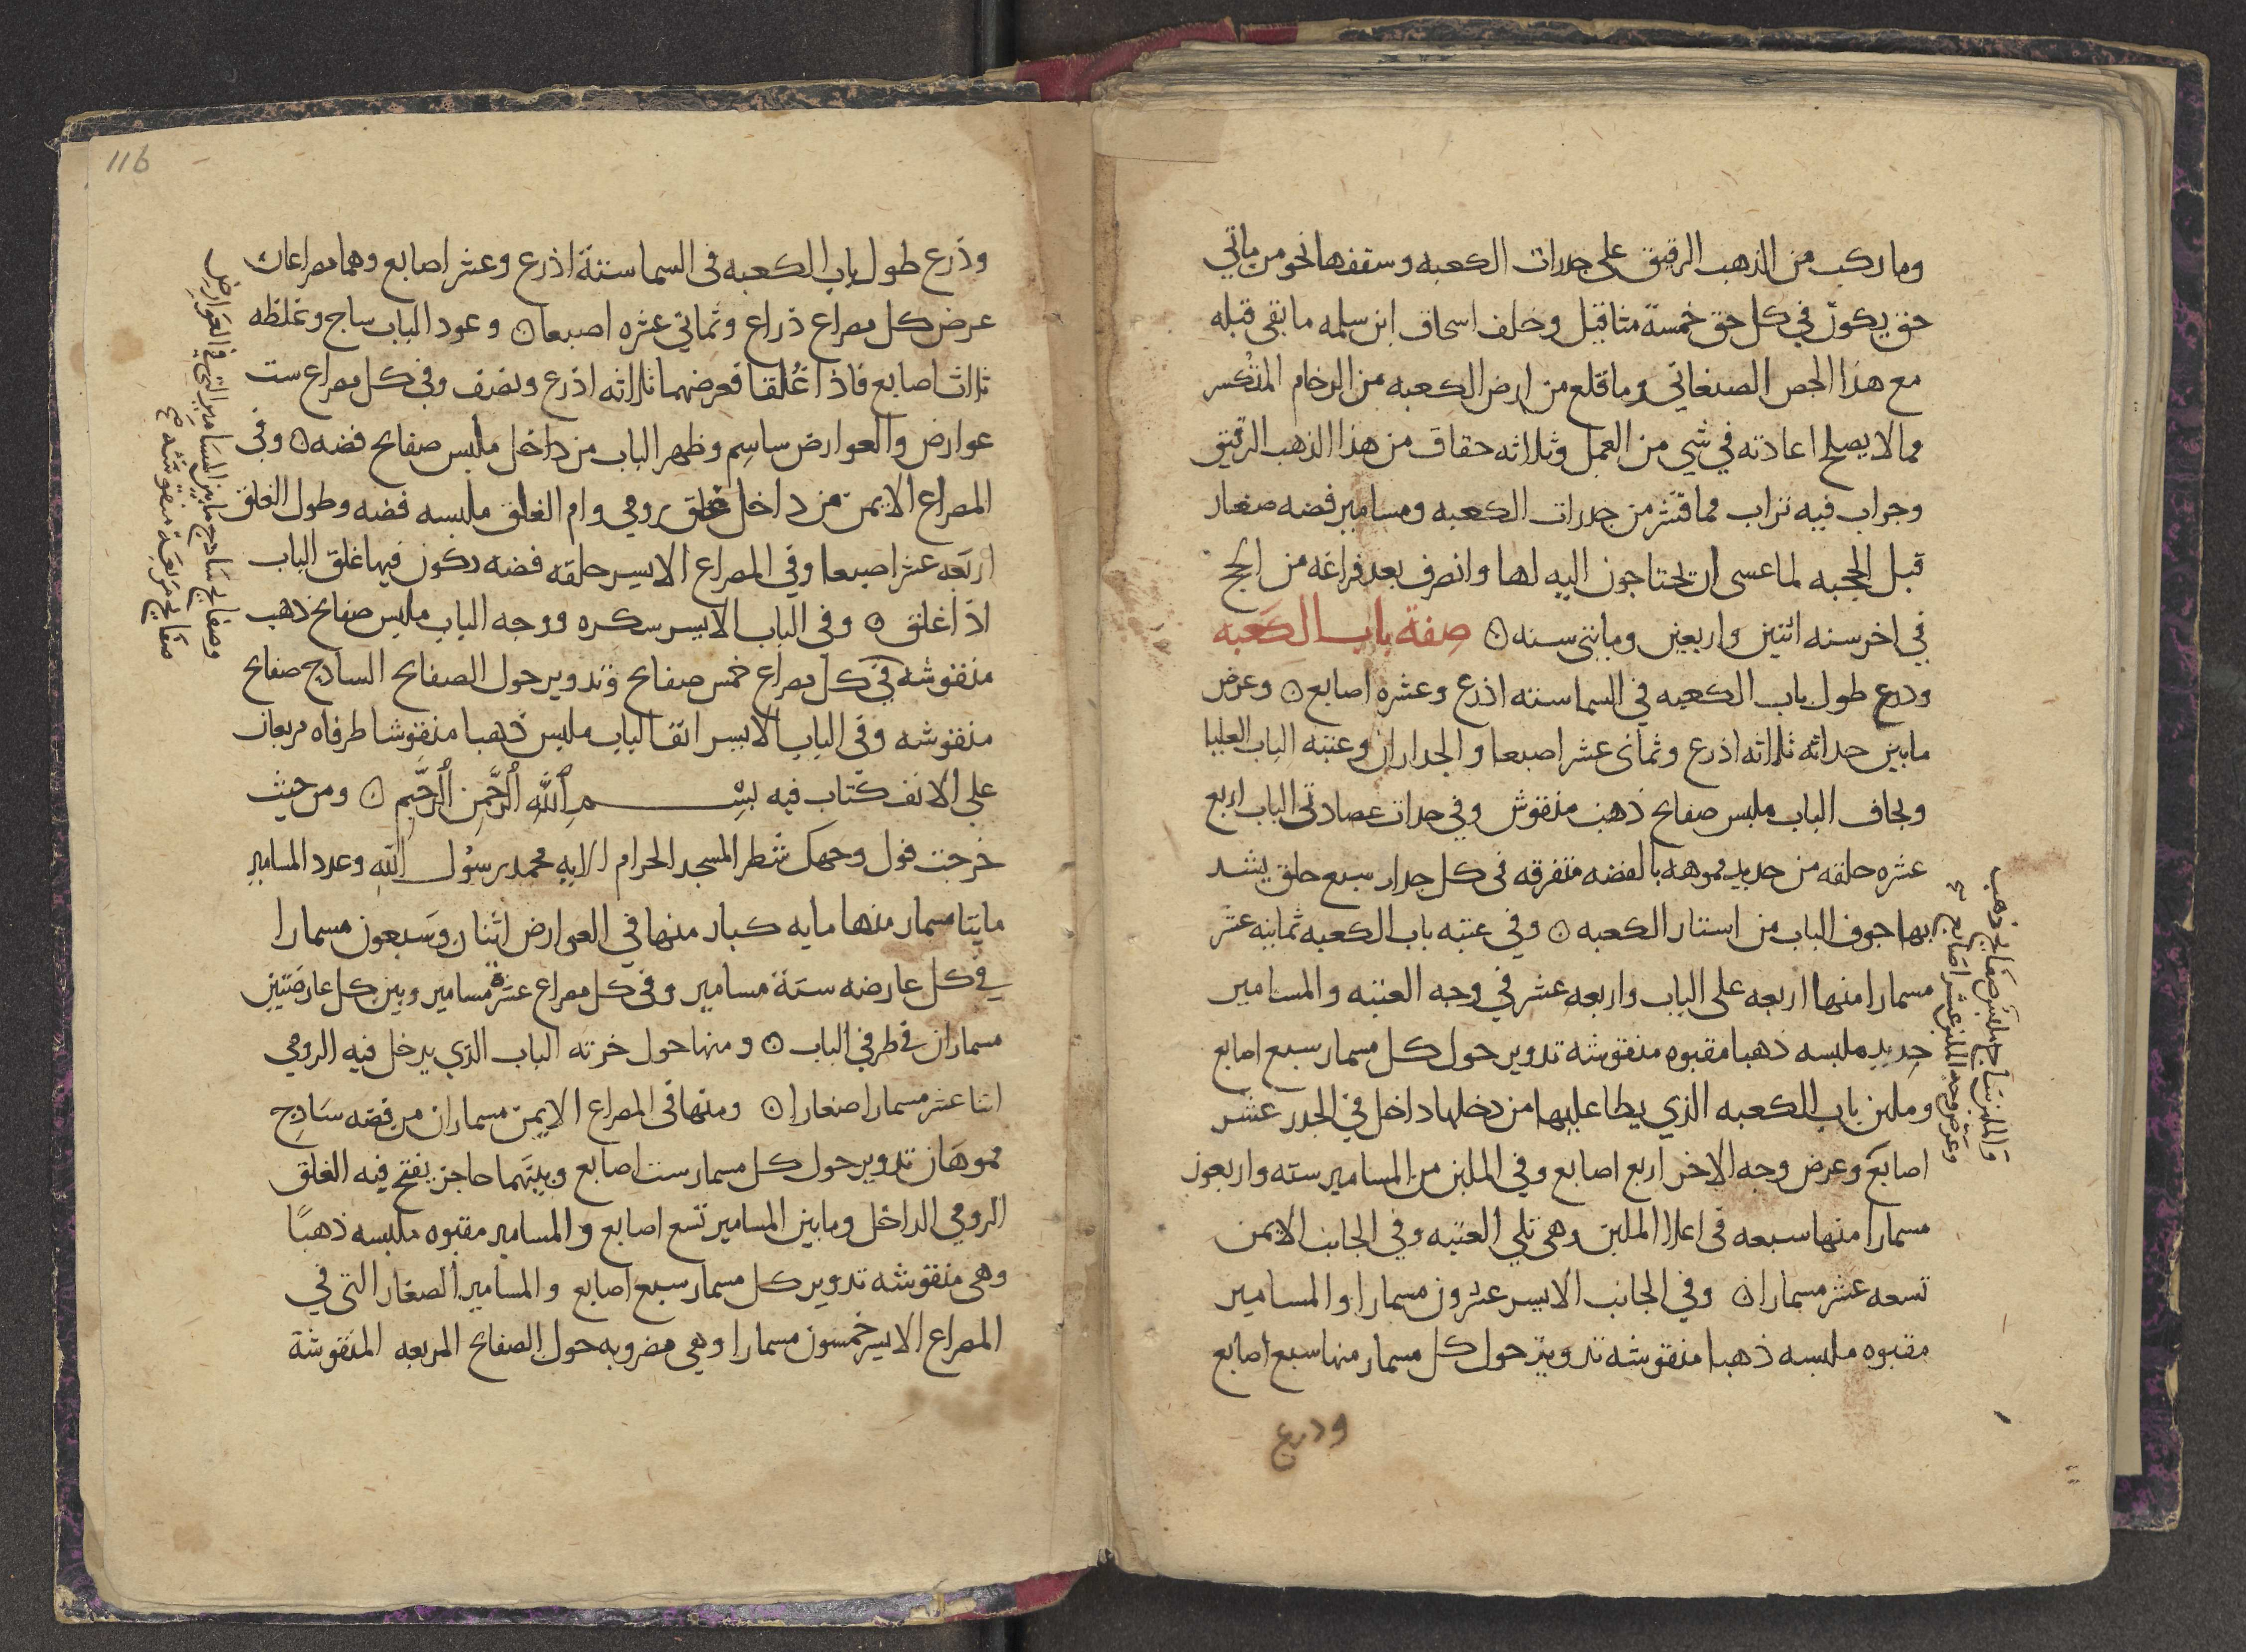 وما ركب من الذهب الرقيق على جدرات الكعبه وسقفها نحو من مايتي
حق يكون في كل حق خمسة مثاقيل وخلف اسحاق ابن سلمه ما بقى قبله
مع هذا الجص الصنعاني وما قلع من ارض الكعبه من الرخام المتكسر
مما لا يصلح اعادته في شي من العمل وثلاثه حقاق من هذا الذهب الرقيق
وجراب فيه تراب مما قشر من جدرات الكعبه ومسامير فضه صغار
قبل الحجبه لما عسى ان يحتاجون اليه لها وانصرف بعد فراغه من الحج
في اخر سنه اثنين واربعين ومايتي سنه ۞ صفة باب الكعبه
وذرع طول باب الكعبه في السما سته اذرع وعشره اصابع ۞ وعرض
ما بين جداته ثلاثه اذرع وثماني عشر اصبعا والجداران وعتبه الباب العليا
ونجاف الباب ملبس صفايح ذهب منقوش وفي جدات عضادتي الباب اربع
عشره حلقه من حديد مموهه بالفضه متفرقه في كل جدار سبع حلق يشد
بها جوف الباب من استار الكعبه ۞ وفي عتبه باب الكعبه ثمانيه عشر
مسمارا منها اربعه على الباب واربعه عشر في وجه العتبه والمسامير
حديد ملبسه ذهبا مقبوه منقوشه تدوير حول كل مسمار سبع اصابع
وملبن باب الكعبه الذي يطا عليها من دخلها داخل في الجدر عشر
اصابع وعرض وجه الاخر اربع اصابع وفي الملبن من المسامير سته واربعون
مسمارا منها سبعه في اعلا الملبن وهي تلي العتبه وفي الجانب الايمن
تسعه عشر مسمارا ۞ وفي الجانب الايسر عشرون مسمارا والمسامير
مقبوه ملبسه ذهبا منقوشه تدوير حول كل مسمار منها سبع اصابع
وذرع
والملبن ساج ملبس صفايح ذهب
وعرض وجه الملبن عشر اصابع صح
116
وذرع طول باب الكعبه في السما ستة اذرع وعشر اصابع وهما مصراعان
عرض كل مصراع ذراع وثماني عشره اصبعا ۞ وعود الباب ساج وغلظه
ثلاث اصابع فاذا غُلقا فعرضهما ثلاثه اذرع ونصف وفي كل مصراع ست
عوارض والعوارض ساسم وظهر الباب من داخل ملبس صفايح فضه ۞ وفي
المصراع الايمن من داخل غلق رومي وام الغلق ملبسه فضه وطول الغلق
اربعه عشر اصبعا وفي المصراع الايسر حلقه فضه يكون فيها غلق الباب
اذا اغلق ۞ وفي الباب الايسر سكره ووجه الباب ملبس صفايح ذهب
منقوشه في كل مصراع خمس صفايح وتدوير حول الصفايح الساذج صفايح
منقوشه وفي الباب الايسر انف الباب ملبس ذهبا منقوشا طرفاه مربعان
على الانف كتاب فيه بسم الله الرحمن الرحيم ۞ ومن حيث
خرجت فول وجهك شطر المسجد الحرام الايه محمد رسول الله وعدد المسامير
مايتا مسمار منها مايه كبار منها في العوارض اثنان وسبعون مسمارا
في كل عارضه ستة مسامير وفي كل مصراع عشرة مسامير وبين كل عارضتين
مسماران في طرفي الباب ۞ ومنها حول خرته الباب الذي يدخل فيه الرومي
اثنا عشر مسمارا صغارا ۞ ومنها في المصراع الايمن مسماران من فضه ساذج
مموهان تدوير حول كل مسمار ست اصابع وبينهما حاجز يفتح فيه الغلق
الرومي الداخل وما بين المسامير تسع اصابع والمسامير مقبوه ملبسه ذهبًا
وهي منقوشه تدوير كل مسمار سبع اصابع والمسامير الصغار التي في
المصراع الايسر خمسون مسمارا وهي مضروبه حول الصفايح المربعه المنقوشة
وصفايح ساذج ما بين المسامير التي في العوارض
صفايح مربعة منقوشه صح